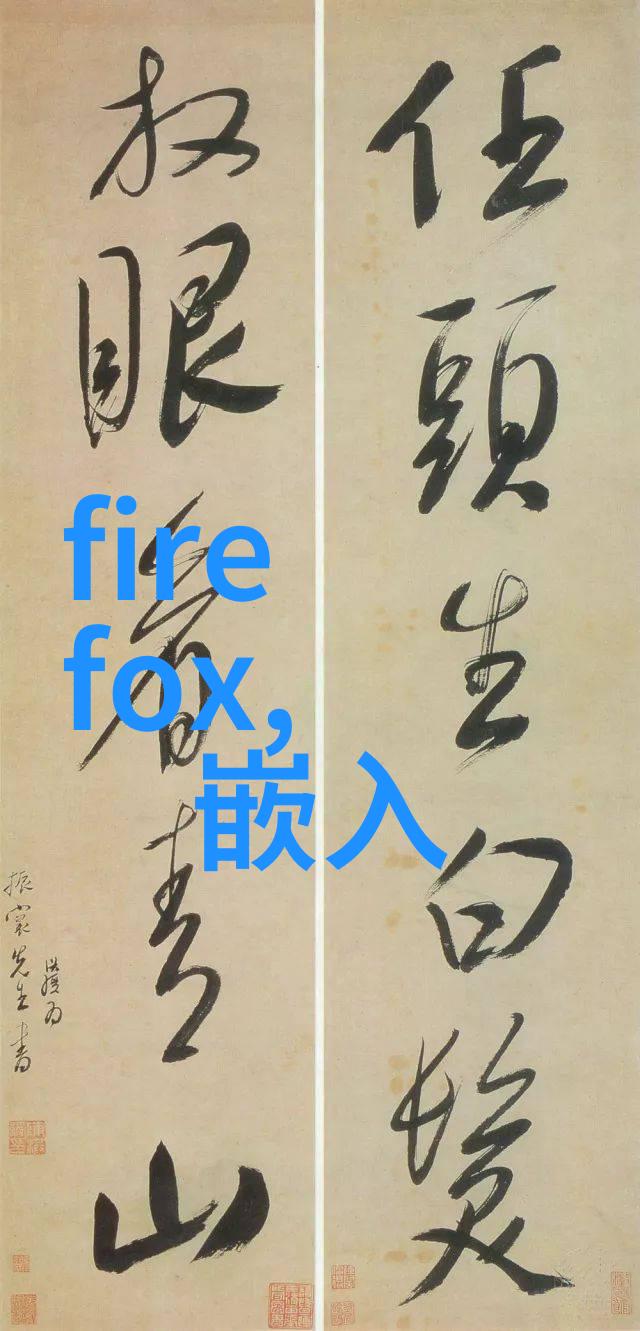 任頭生白髮
放眼看青山
振裳先生書
fire
fox,
嵌入